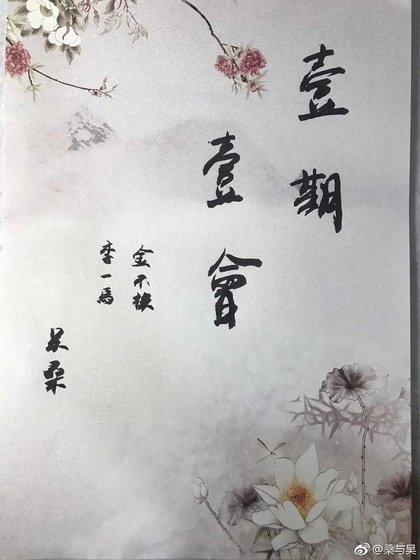 壹期
壹會
金不換
李一馬
吴桑
@桑与吴